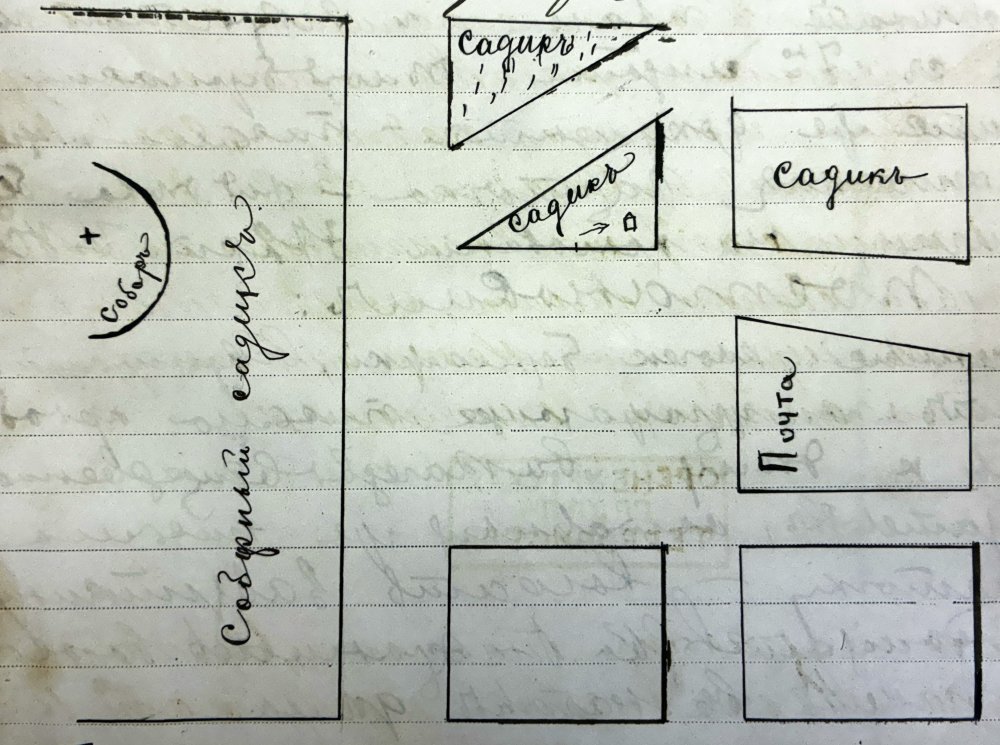 садикъ
садикъ
садикъ
Соборъ
Соборный садикъ
Почта